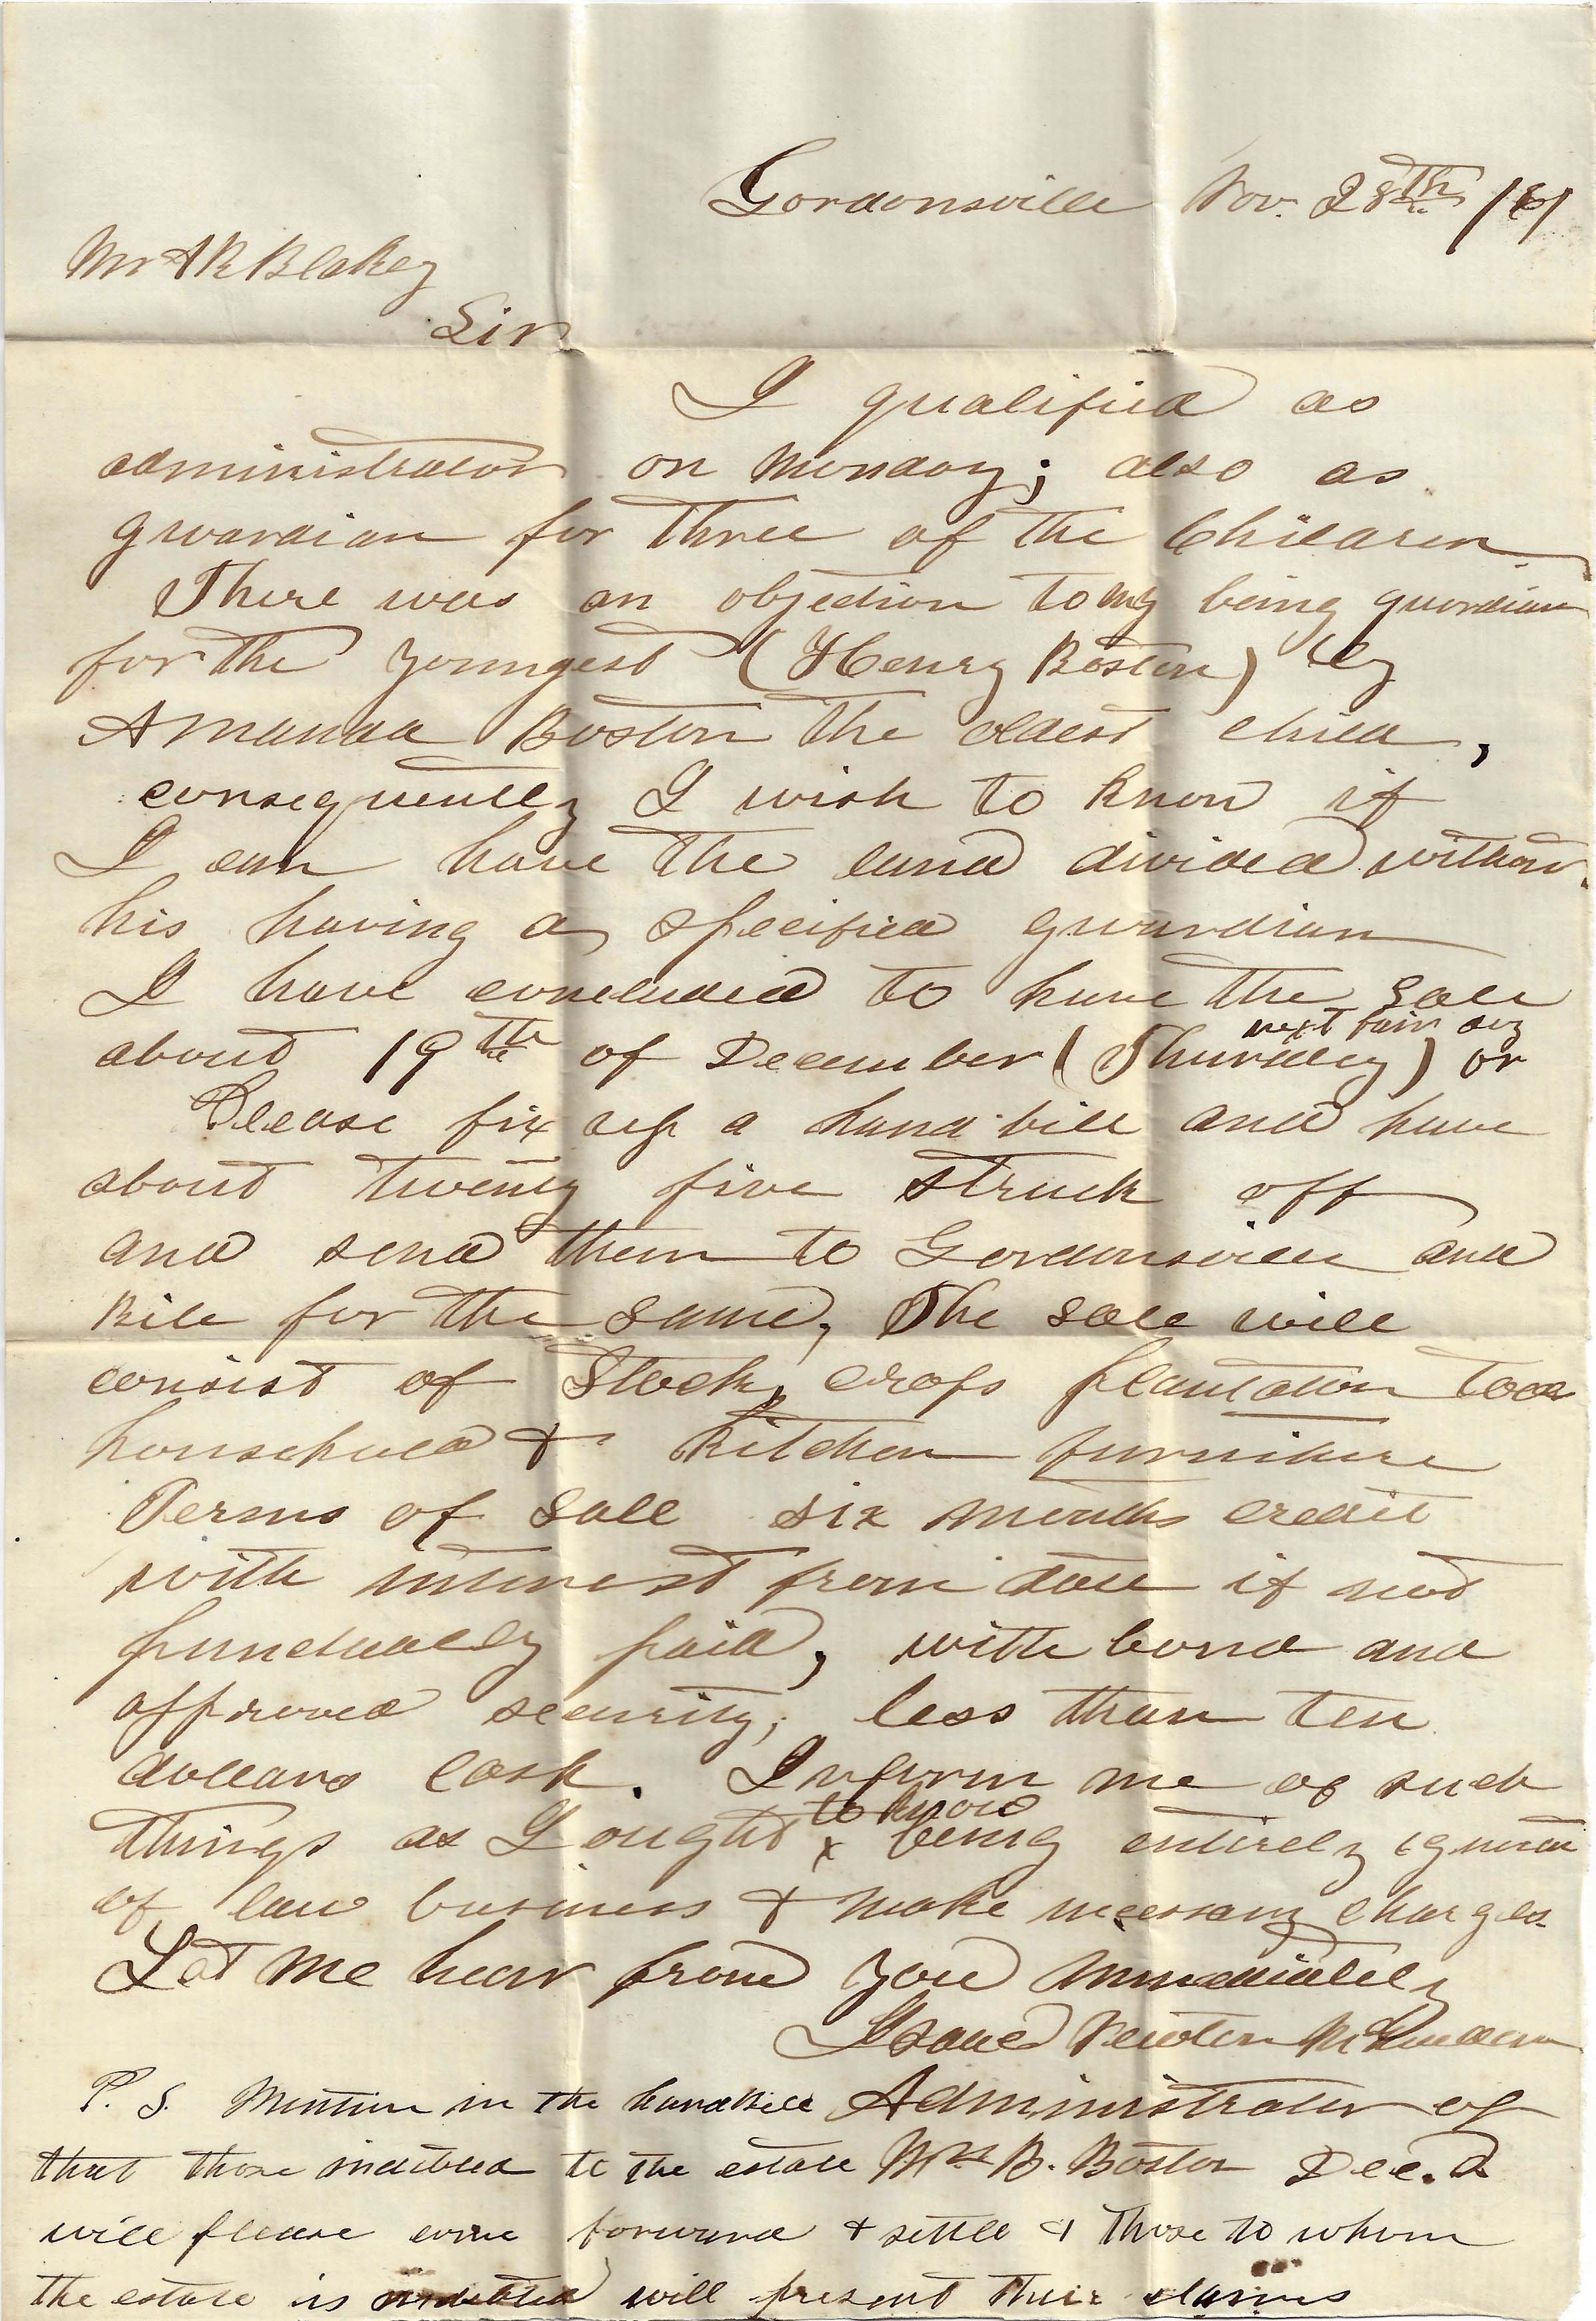 Gordonsville Nov. 28th /61
Mr A R Blakey
Sir
I qualified as
administrator on Monday; also as
gwardian for three of the Children
There was an objection to my being guardian
for the youngest (Henry Boston) by
Amanda Boston the oldest child,
consequently I wish to know if
I can have the land divided without
his having a specified gwardian
I have concluded to have the sale
about 19th of December (Thursday) or
next fair day
Please fix up a hand bill and have
about twenty five struck off
and send them to Gordonsville and
Bill for the same, The sale will
consist of Stock, crops plantation tools
household & Kitchen furniture
Terms of Sale six months credit
with interest from date if not
punctually paid, with bond and
approved security; less than ten
dollars cash. Inform me of such
things as I ought x to know being entirely ignorant
of law business & make necessary charges.
Let me hear from you immediately
Isaac Newton
Administrator of
Wm B. Boston Dec.d
P. S. Mention in the handbill
that those indebted to the estate
will please come forward & settle & those to whom
the estate is indebted will present their claims